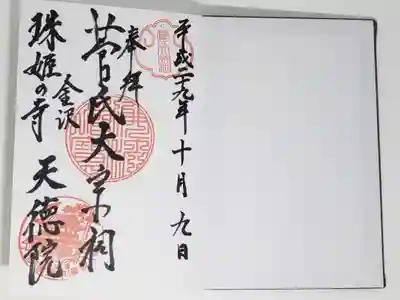 平成二九年十月九日
奉拝
菅氏大宗祠
金沢
珠姫の寺 天徳院